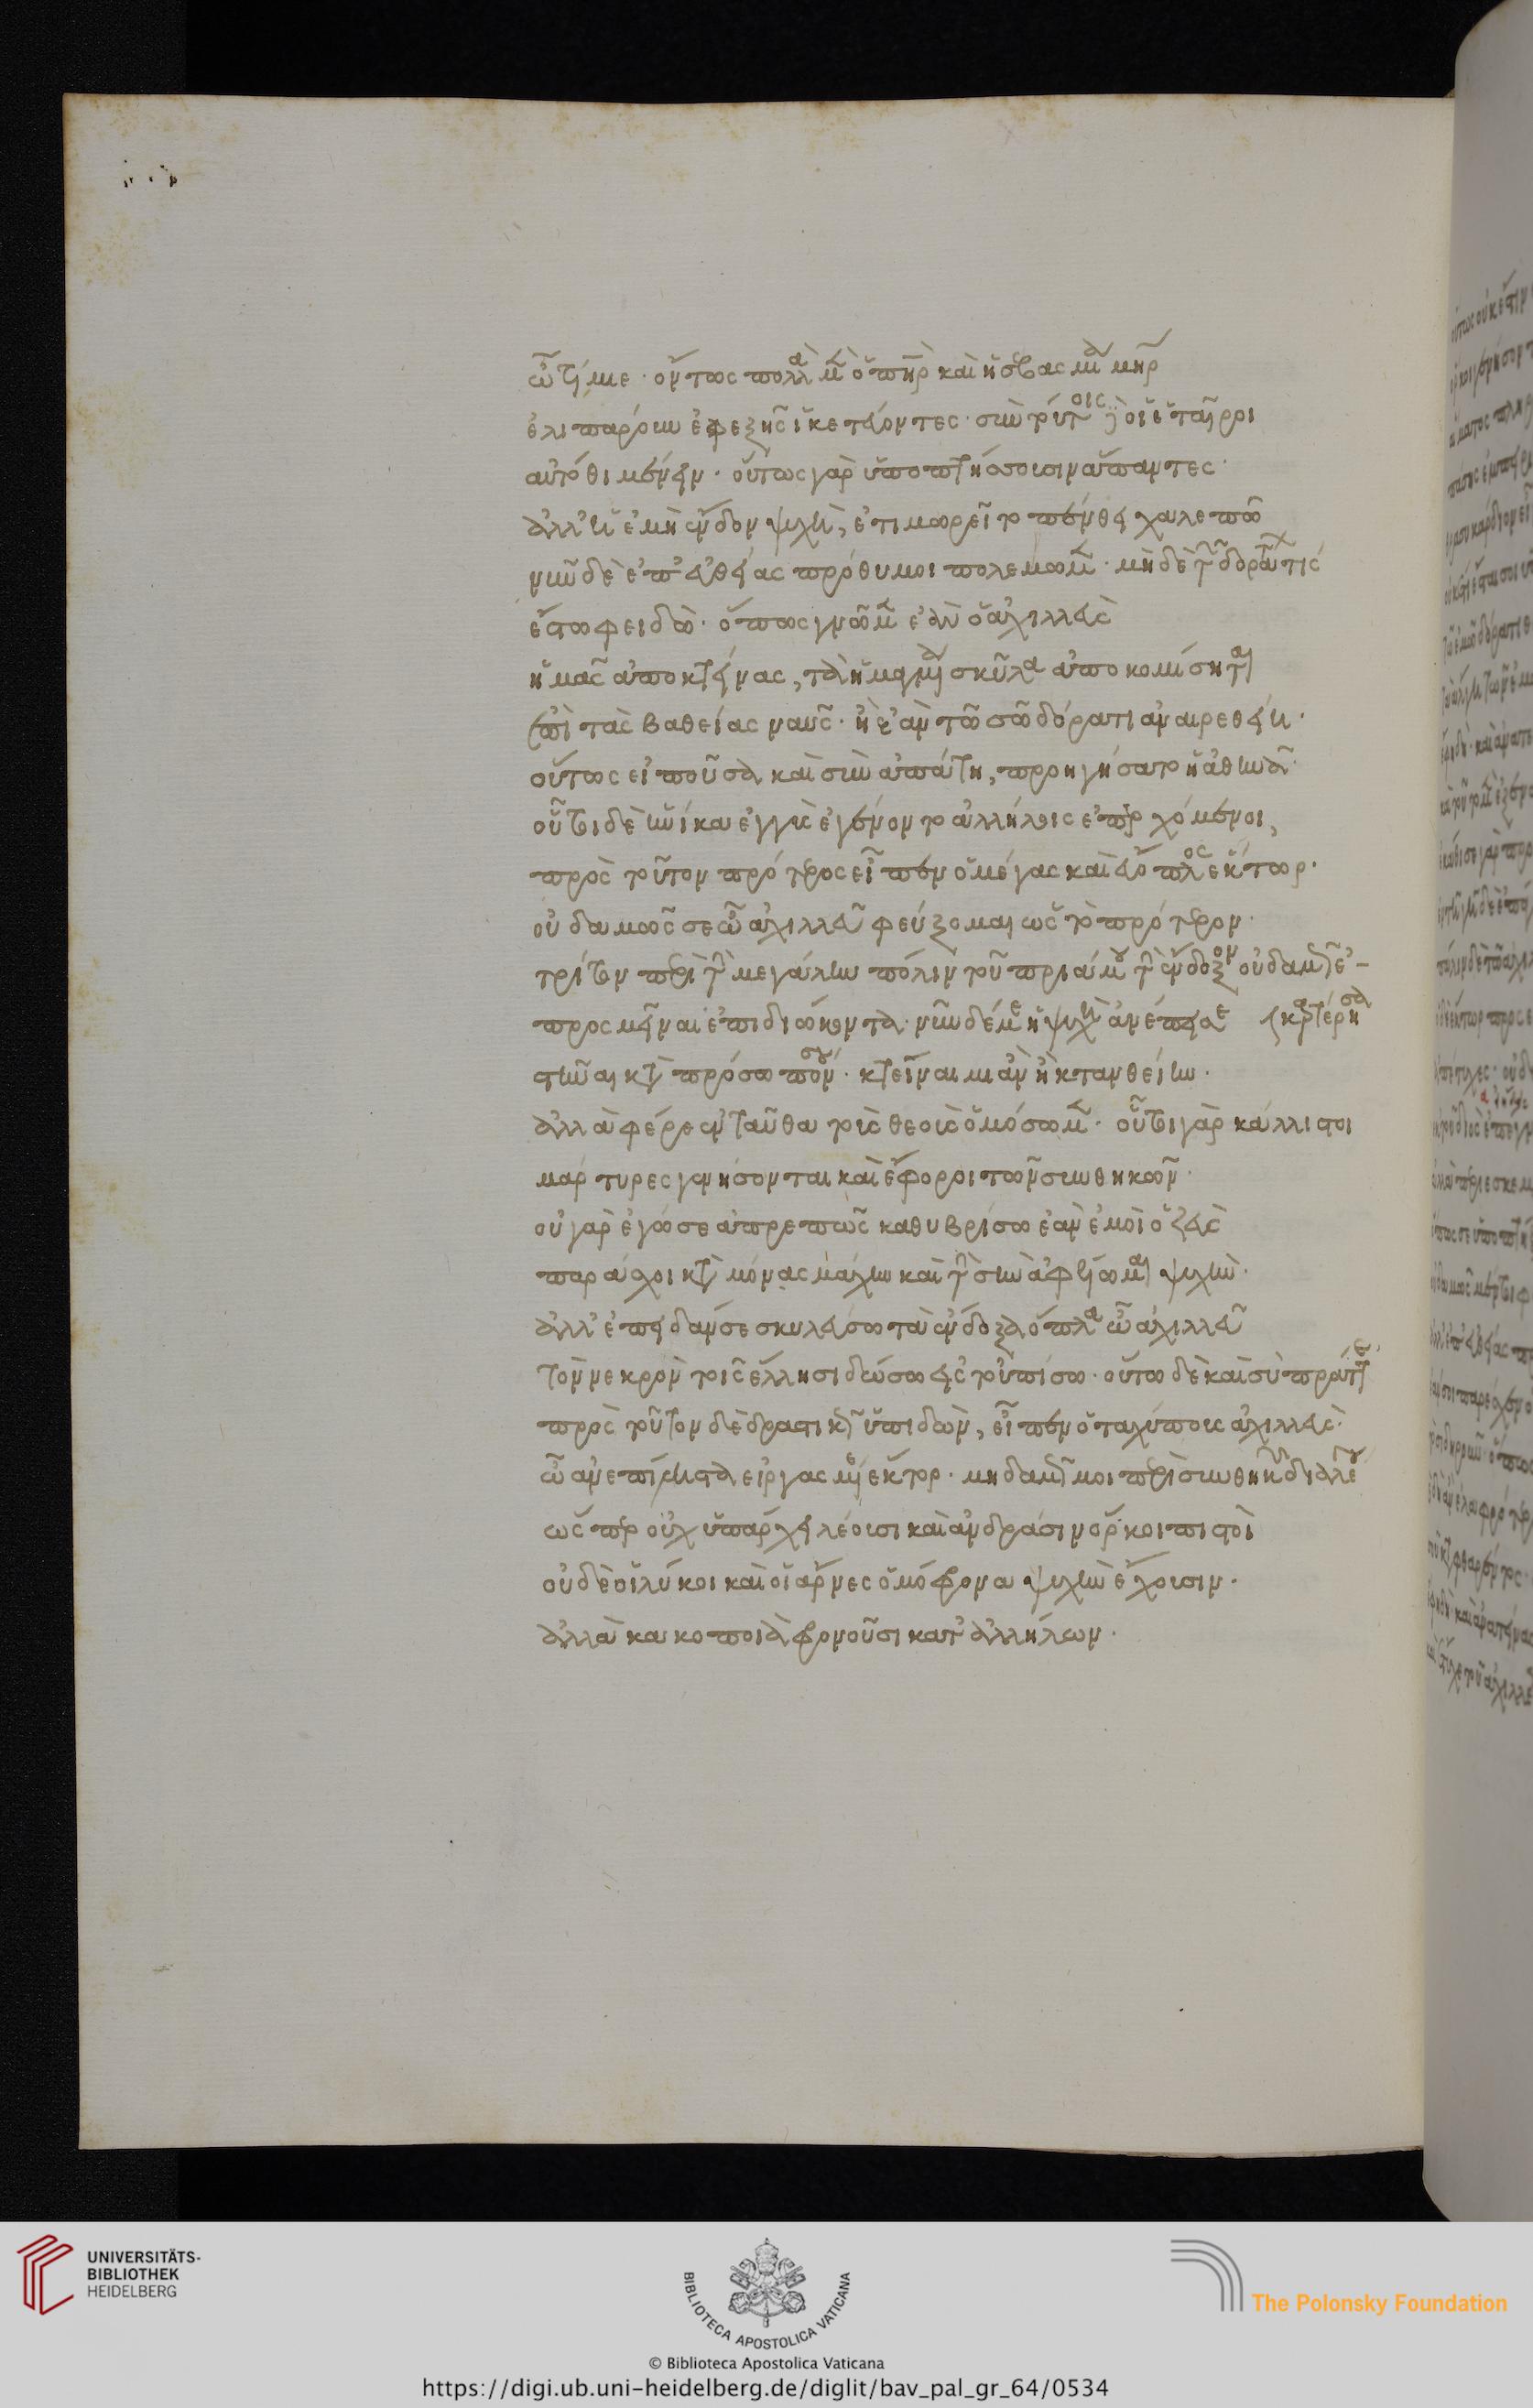 ὦ τίμιε. ὄντως πολλὰ μὲν ὁ πατὴρ καὶ ἡ σεβασμία μήτηρ
ἐλιπάρουν ἐφεξῆς ἱκετεύοντες. σὺν τούτοις δὲ οἱ ἑταῖροι
αὐτόθι μένειν. οὕτως γὰρ ὑποπτήσσουσιν ἅπαντες.
ἀλλ' ἡ ἐμὴ ἔνδον ψυχὴ, ἐτιμωρεῖτο πένθει χαλεπῶ
νῦν δὲ ἐπ' εὐθείας πρόθυμοι πολεμῶμεν. μηδὲ τῶν δοράτων τίς
ἔστω φειδὼ. ὅπως γνῶμεν ἐὰν ὁ ἀχιλλεὺς
ἡμᾶς ἀποκτείνας, τὰ ἡμαγμένα σκῦλα ἀποκομίσηται
ἐπὶ τὰς βαθείας ναῦς. ἢ ἐὰν τῶ σῶ δόρατι ἀναιρεθείη.
οὕτως εἰποῦσα καὶ σὺν ἀπάτη, προηγήσατο ἡ ἀθηνᾶ.
οὗτοι δὲ ἡνίκα ἐγγὺς ἐγένοντο ἀλλήλοις ἐπερχόμενοι,
πρὸς τοῦτον πρότερος εἶπεν ὁ μέγας καὶ εὔοπλος ἕκτωρ.
οὐδαμῶς σε ὦ ἀχιλλεῦ φεύξομαι ὡς τὸ πρότερον.
τρίτον περὶ τὴν μεγάλην πόλιν τοῦ πριάμου τὴν ἔνδοξον οὐδαμῶς ἐ-
προσμεῖναι ἐπιδιώκοντα. νῦν δέ με ἡ ψυχὴ ἀνέπεισε καρτέρησα
στῆναι κατὰ πρόσωπόν σου. κτείναιμι ἂν ἢ κτανθείην.
ἀλλὰ φέρε ἐνταῦθα τοὺς θεοὺς ὀμόσωμεν. οὗτοι γὰρ κάλλιστοι
μάρτυρες γενήσονται καὶ ἔφοροι τῶν συνθηκῶν.
οὐ γὰρ ἐγώ σε ἀπρεπῶς καθυβρίσω ἐὰν ἐμοὶ ὁ ζεὺς
παράσχοι κατὰ μόνας μάχην καὶ τὴν σὴν ἀφέλωμαι ψυχὴν.
ἀλλ' ἐπειδάν σε σκυλεύσω τὰ ἔνδοξα ὅπλα ὦ ἀχιλλεῦ
τὸν νεκρὸν τοῖς ἕλλησι δώσω εἰς τοὐπίσω. οὕτω δὲ καὶ σὺ πράττε
πρὸς τοῦτον δὲ δραστικῶς ὑπιδὼν, εἶπεν ὁ ταχύπους ἀχιλλεὺς.
ὦ ἀνεπίληστα εἰργασμένε ἕκτορ. μηδαμῶς μοι περὶ συνθηκῶν διαλέγου
ὥσπερ οὐχ ὑπάρχει λέουσι καὶ ἀνδράσιν ὅρκοι πιστοὶ
οὐδὲ οἱ λύκοι καὶ οἱ ἄρνες ὁμόφρονα ψυχὴν ἔχουσιν.
ἀλλὰ κακοποιὰ φρονοῦσι κατ' ἀλλήλων.
UNIVERSITÄTS-
BIBLIOTHEK
HEIDELBERG
BIBLIOTECA APOSTOLICA VATICANA
The Polonsky Foundation
© Biblioteca Apostolica Vaticana
https://digi.ub.uni-heidelberg.de/diglit/bav_pal_gr_64/0534